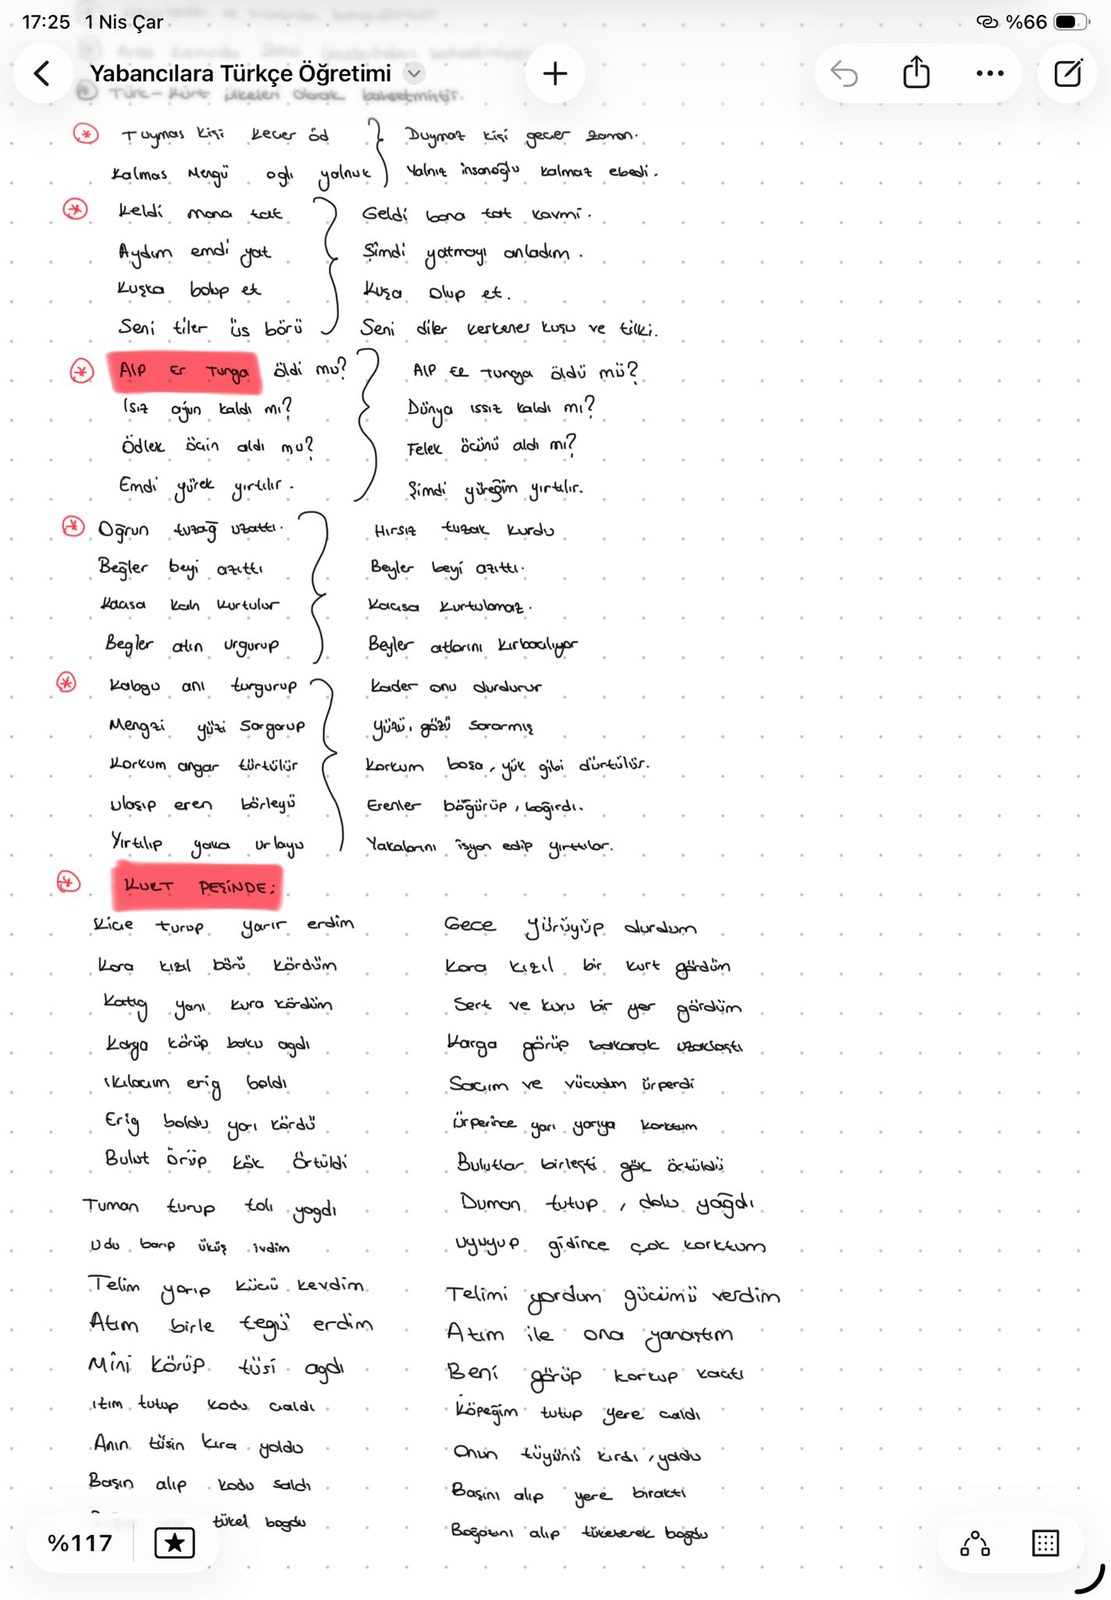 17:25 1 Nis Çar %66
Yabancılara Türkçe Öğretimi
Türk-Kürt ülkeleri olarak bahsetmiştir.
Tuymas kişi kecer öd Duymaz kişi geçer zaman.
Kalmas Mengü oglı yalnuk Yalnız insanoğlu kalmaz ebedi.
Keldi mana tat Geldi bana tat kavmi.
Aydım emdi yat Şimdi yatmayı anladım.
Kuşka bolup et Kuşa olup et.
Seni tiler üs börü Seni diler kerkenes kuşu ve tilki.
Alp Er Tunga öldi mu? Alp Er Tunga öldü mü?
Isız ajun kaldı mı? Dünya ıssız kaldı mı?
Ödlek öcin aldı mu? Felek öcünü aldı mı?
Emdi yürek yırtılır. Şimdi yüreğim yırtılır.
Oğrun tuzağ uzattı. Hırsız tuzak kurdu
Beğler beyi azıttı Beyler beyi azıttı.
Kacısa kah kurtulur Kaçısa kurtulamaz.
Begler atın urgurup Beyler atlarını kırbaçlıyor
Kabgu anı turgurup Kader onu durdurur
Mengzi yüzi sargarup Yüzü, gözü sararmış
Korkum angar türtülür Korkum basa, yük gibi dürtülür.
Ulaşıp eren börleyü Erenler böğürüp, bağırdı.
Yırtılıp yaka urlayu Yakalarını isyan edip yırttılar.
KURT PEŞİNDE:
Kice turup yarır erdim Gece yürüyüp durdum
Kara kızıl börü kördüm Kara kızıl bir kurt gördüm
Katıg yanı kura kördüm Sert ve kuru bir yer gördüm
Karga körüp baku agdı Karga görüp bakarak uzaklaştı
Ikılacım erig boldı Saçım ve vücudum ürperdi
Erig boldu yarı kördü Ürperince yarı yarıya korktum
Bulut örüp kök örtüldi Bulutlar birleşti gök örtüldü
Tuman turup tolı yagdı Duman tutup, dolu yağdı
Udu barıp üküş ivdim Uyuyup gidince çok korktum
Telim yarıp kücü kevdim Telimi yordum gücümü verdim
Atım birle tegü erdim Atım ile ona yanaştım
Mini körüp tüsi agdı Beni görüp korkup kaçtı
Itım tutup kodu caldı Köpeğim tutup yere çaldı
Anın tüsin kıra yoldu Onun tüyünü kırdı, yoldu
Başın alıp kodu saldı Başını alıp yere bıraktı
tükel bogdu Boğazını alıp tüketerek boğdu
%117